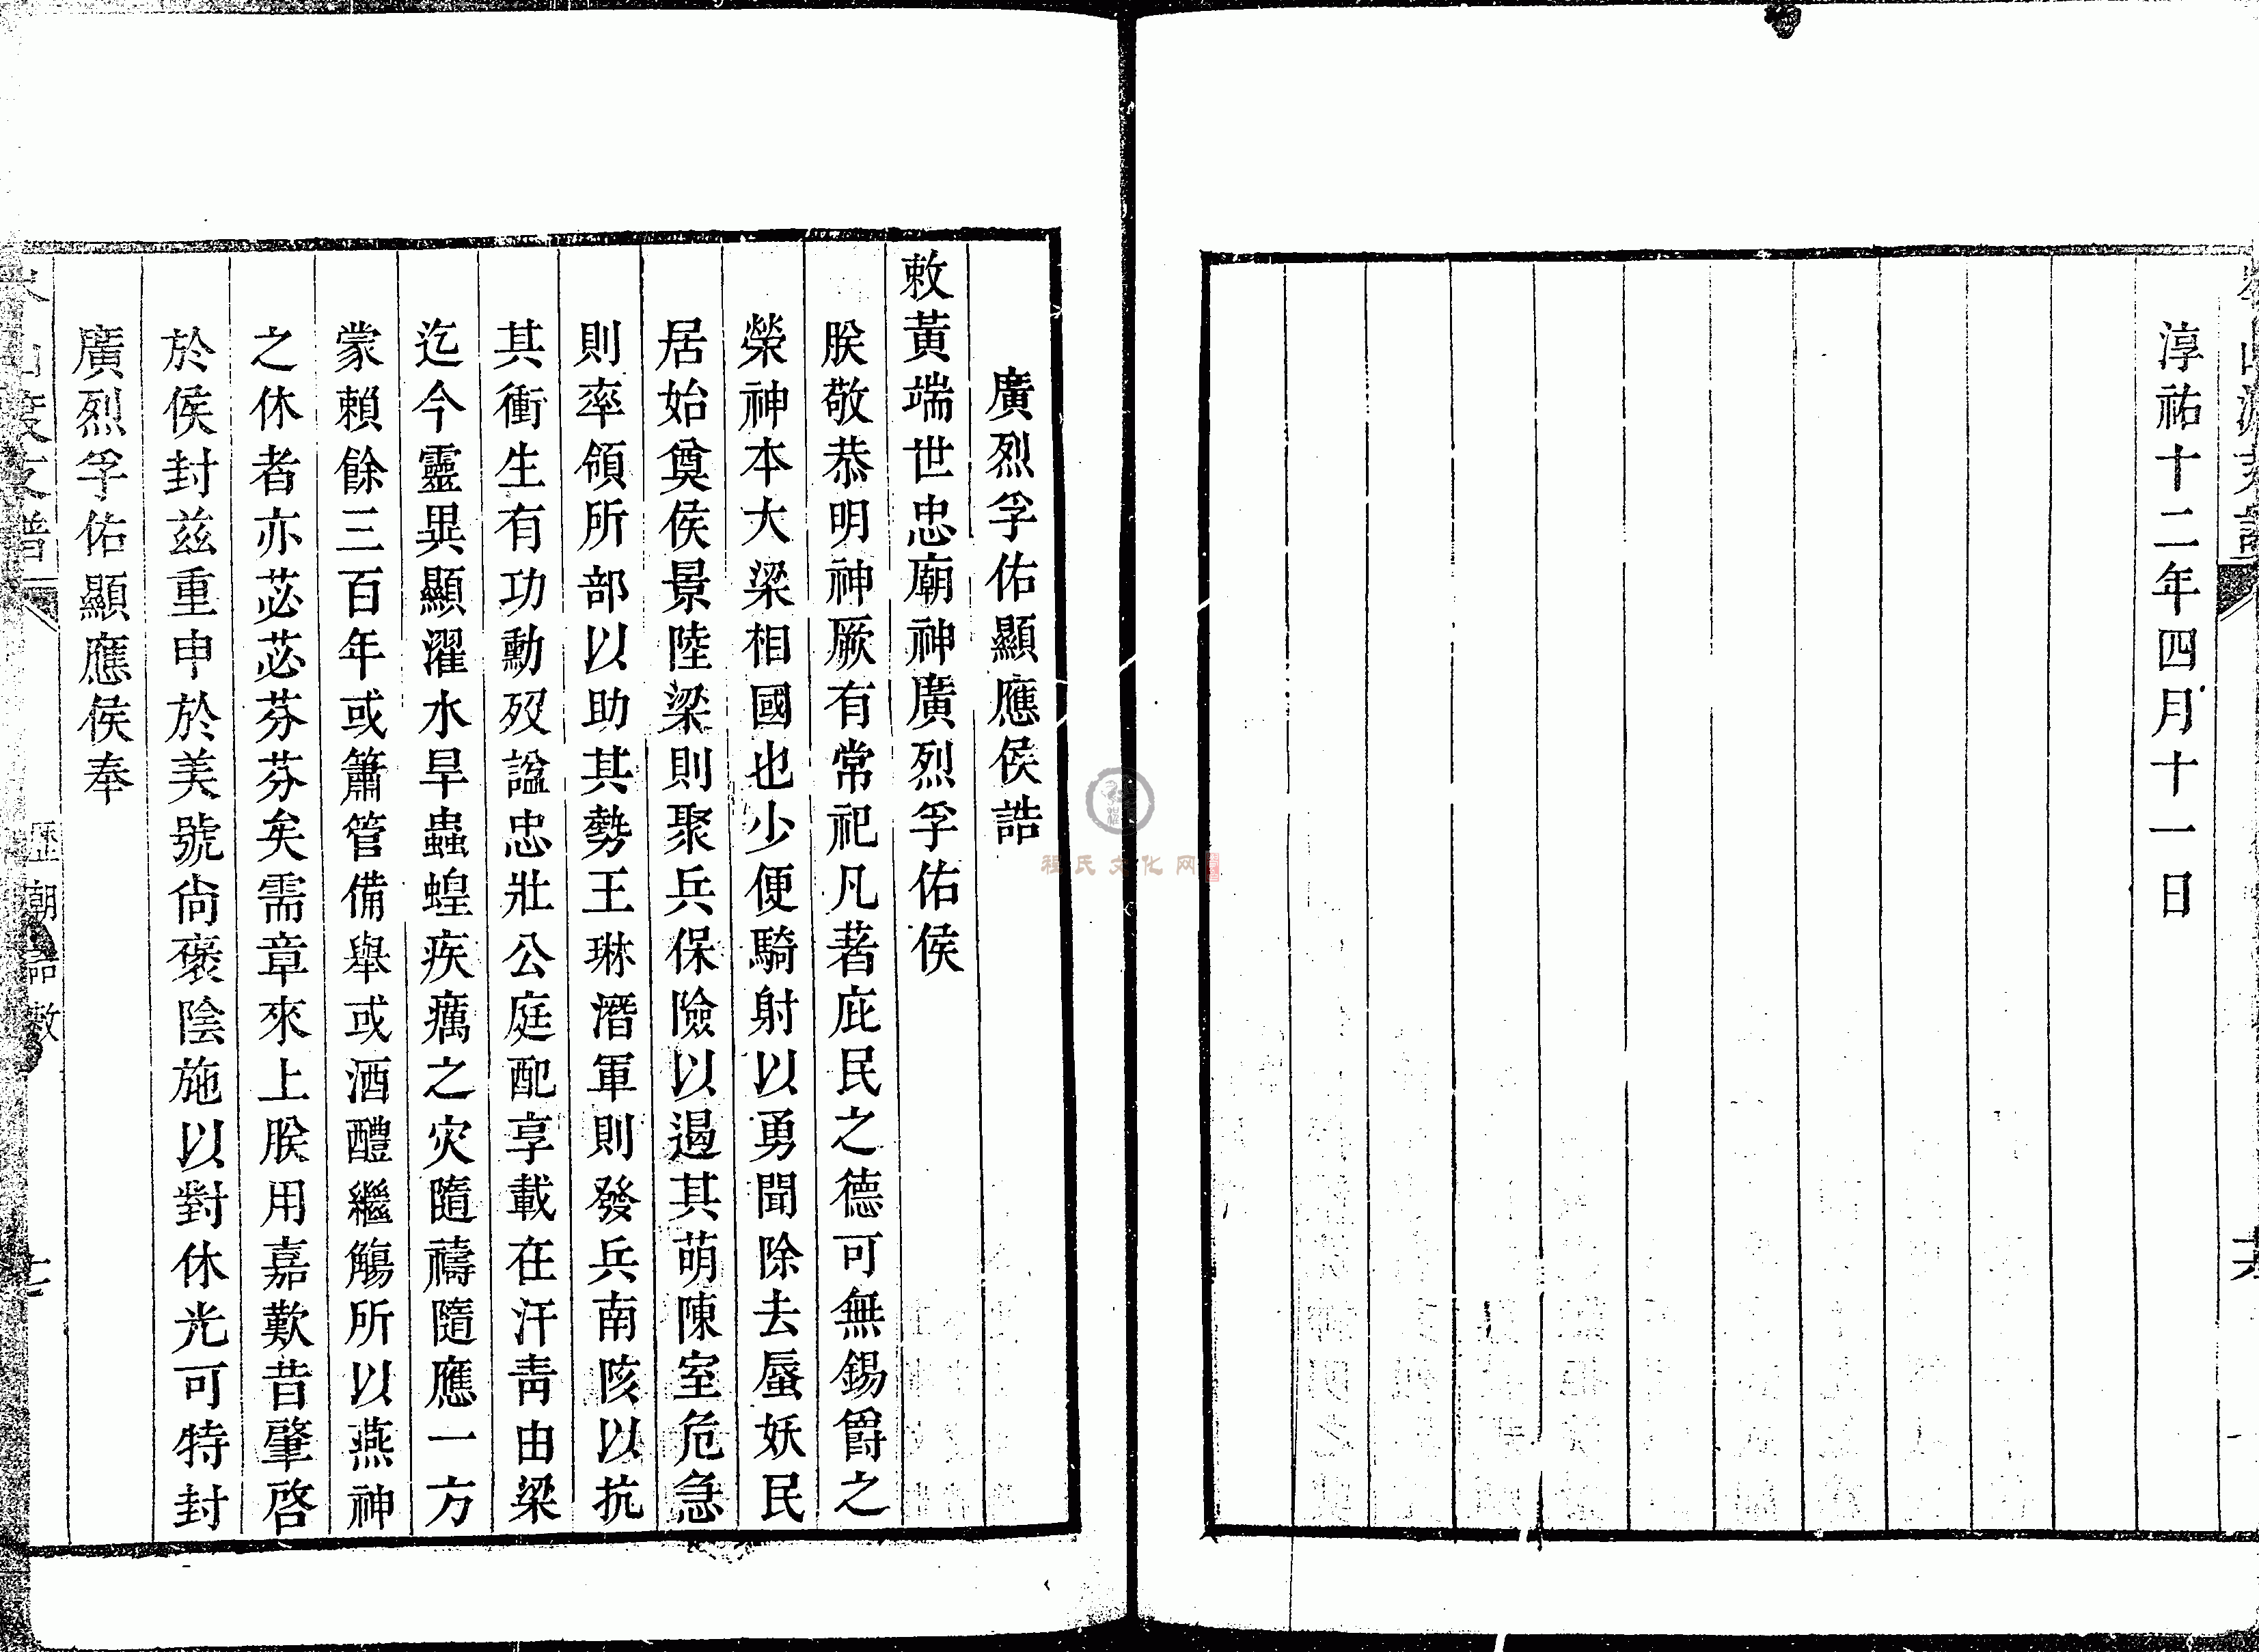 淳祐十二年四月十一日
廣烈孚佑顯應侯誥
敕黃端世忠廟神廣烈孚佑侯
朕敬恭明神厥有常祀凡著庇民之德可無錫爵之
榮神本大梁相國也少便騎射以勇聞除去蜃妖民
居始奠侯景陸梁則聚兵保險以遏其萌陳室危急
則率領所部以助其勢王琳潛軍則發兵南陔以抗
其衝生有功勳歿諡忠壯公庭配享載在汗青由梁
迄今靈異顯濯水旱蟲蝗疾癘之灾隨禱隨應一方
蒙賴餘三百年或簫管備舉或酒醴繼觴所以燕神
之休者亦苾苾芬芬矣需章來上朕用嘉歎昔肇啓
於侯封茲重申於美號尙褒陰施以對休光可特封
廣烈孚佑顯應侯奉
歷朝誥敕
程氏文化网